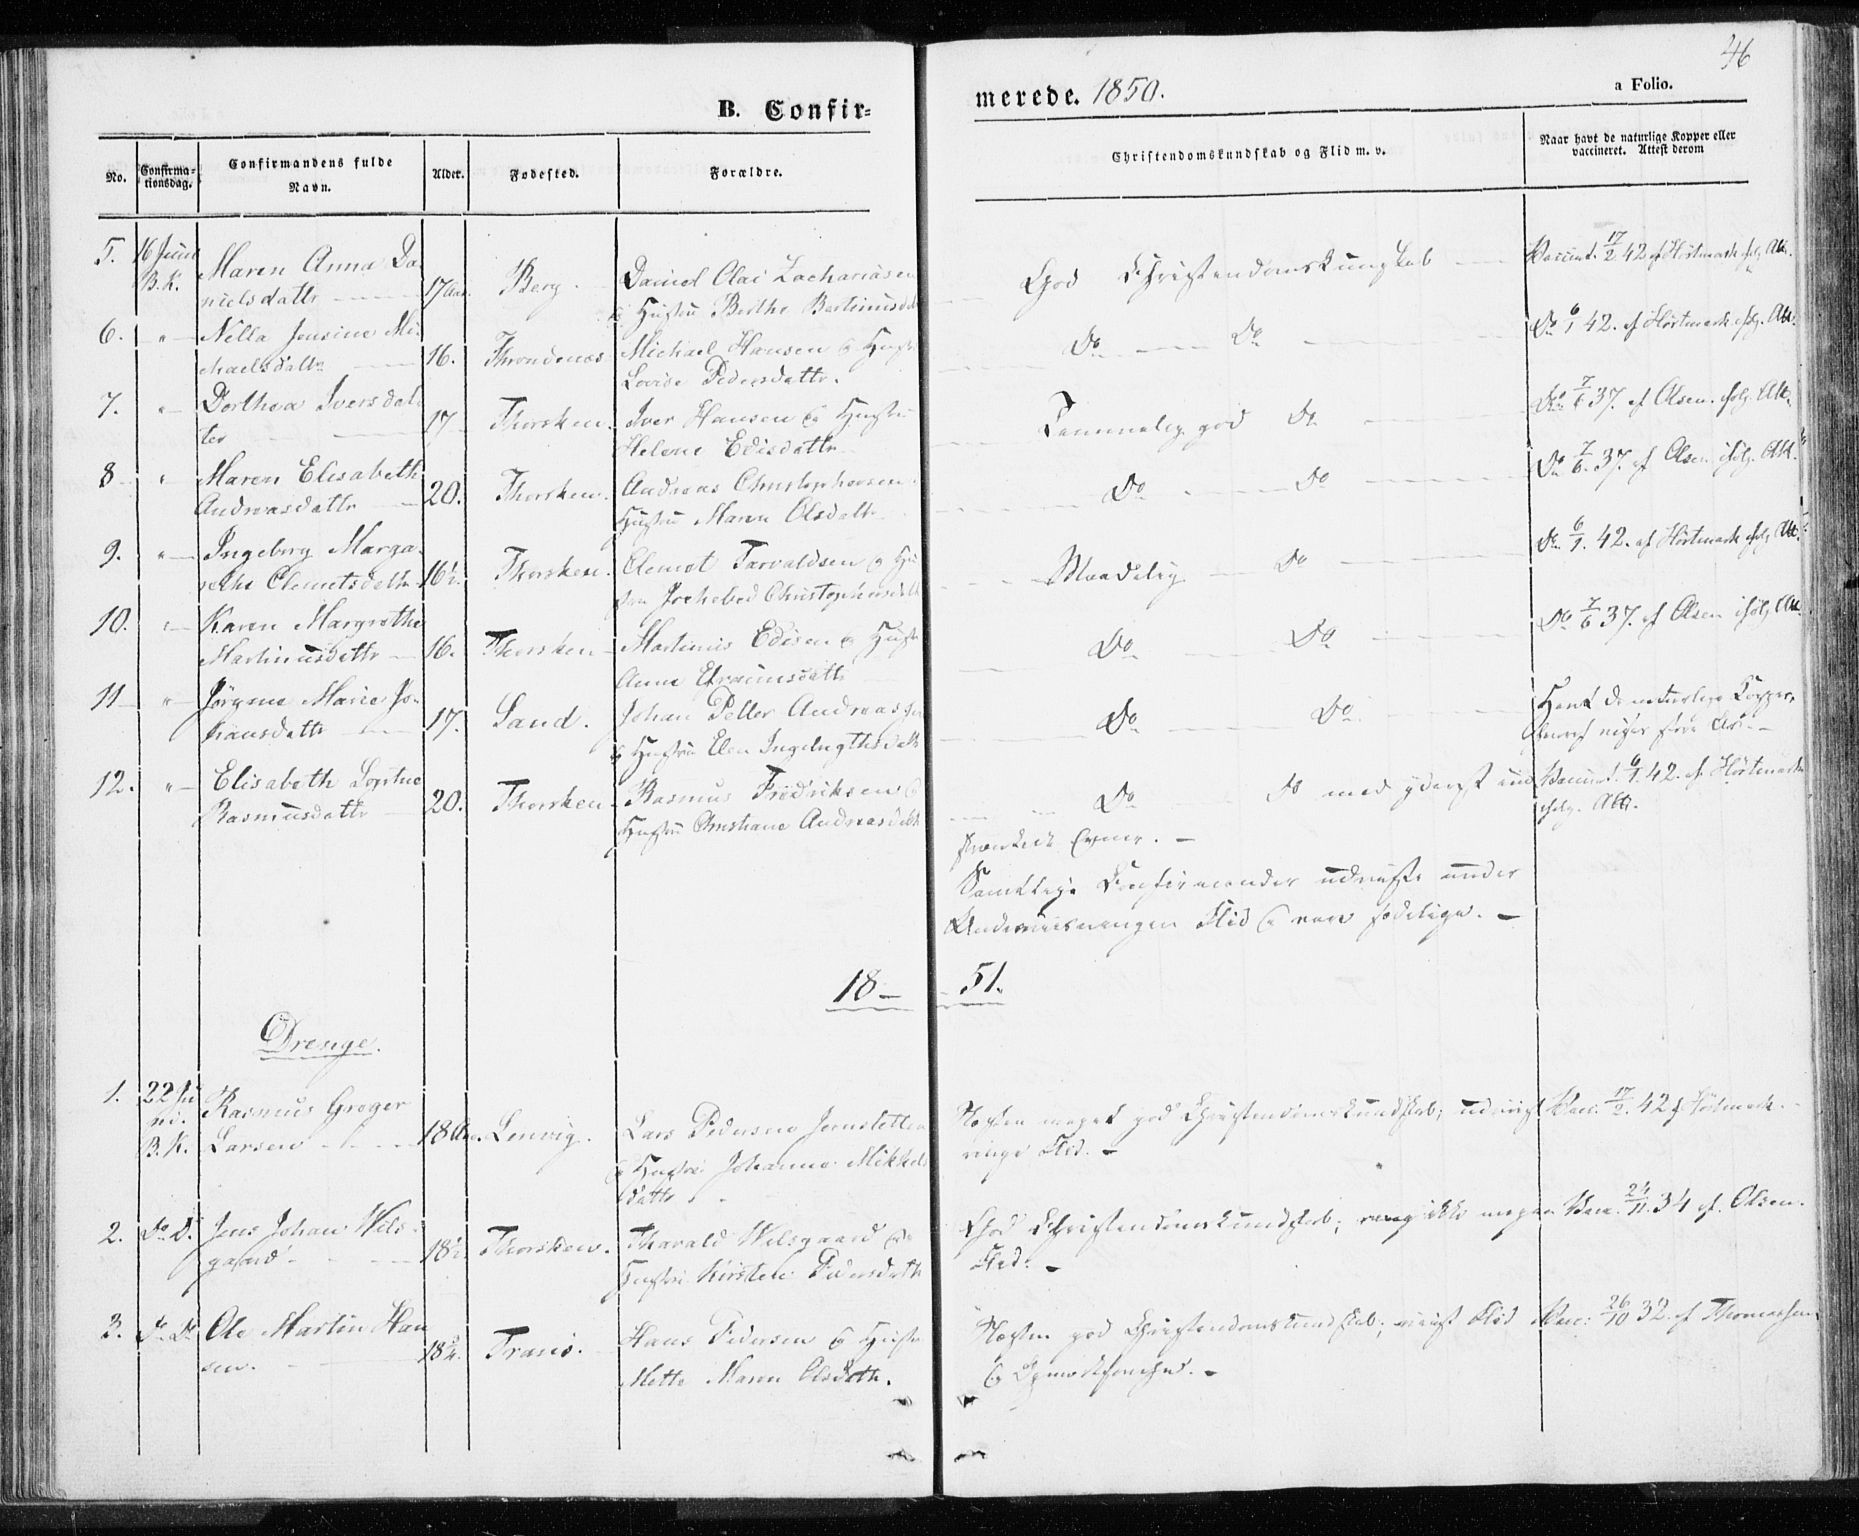 46
B. Confir=
merede. 1850.
a Folio.
No.
Confirma-
tionsdag.
Confirmandens fulde
Navn.
Alder.
Fødested.
Forældre.
Christendomskundskab og Flid m. v.
Naar havt de naturlige Kopper eller
vaccineret. Attest derom
5. 16 Juni
B. K.
Maren Anna Da
nielsdattr
17 Aar.
Berg.
Daniel Olai Zachariasen
& Hustru Berthe Bertinusdtr
God Christendomskungskab
Vaccinet. 17/2 42 af Hørtmark ifølg. Att.
6. " Nella Jensine Mi-
chaelsdattr
16. Throndenæs
Michael Hansen & Hustr
Lovise Pedersdattr.
Do Do
Do 6/1 42. af Hørtmark ifølg. Att.
7. " Dorthea Iversdat-
ter
17 Thorsken.
Iver Hansen & Hustru
Helene Edisdattr
Temmelig god Do
Do 7/6 37. af Olsen. ifølg. Att.
8 " Maren Elisabeth
Andreasdattr
20. Thorsken.
Andreas Christophersen
Hustru Maren Olsdattr
Do Do
Do 7/6. 37. af Olsen ifølg. Att.
9. " Ingeborg Marga-
rethe Clemetsdattr
16½. Thorsken.
Clemet Tarvaldsen & Hu
stru Jochebed Christophersdattr
Maadelig Do
Do 6/1. 42. af Hørtmark ifølg. Att.
10. " Karen Margrethe
Martinusdattr
16. Thorsken
Martinus Edisen & Hustr
Anne Efraimsdattr
Do Do
Do 7/6 37. af Olsen ifølg. Att.
11 " Jørgine Marie Jo-
hansdattr
17. Sand.
Johan Petter Andreasen
& Hustru Elen Ingebrigtsdattr
Do Do
Havt de naturlige Kopper,
12. " Elisabeth Sophie
Rasmusdattr
20. Thorsken
Rasmus Fredriksen &
Hustru Christiane Andreasdattr
Do Do med yderst ind
skrænkede Evner.
Vaccinet. 6/1. 42. af Hørtmark
ifølg. Att.
Samtlige Confirmander udviiste under
Underviisningen Flid & vare sædelige.
18 — 51.
Drenge.
1. 22 Ju
ni.
B. K.
Rasmus Greger
Larsen
18 Aar. Lenvig.
Lars Pedersen Jernsletten
& Hustru Johanna Mikkels
dattr
Næsten meget god Christendomskundskab; udviist
ringe Flid.
Vacc. 17/2. 42 af Hørtmark.
2. Do D. Jens Johan Wils-
gaard
18½. Thorsken.
Tharald Wilsgaard &
Hustru Kirsten Pedersdattr
God Christendomskundskab; ikke megen
Flid.
Vacc. 24/11. 34 af Olsen.
3. Do Do Ole Martin Han
sen.
18¾. Tranø.
Hans Pedersen & Hustr
Mette Maren Olsdattr.
Næsten god Christendomskundskab; viist Flid
& Opmærksomhed.
Vacc: 26/10 32. af Thomassen